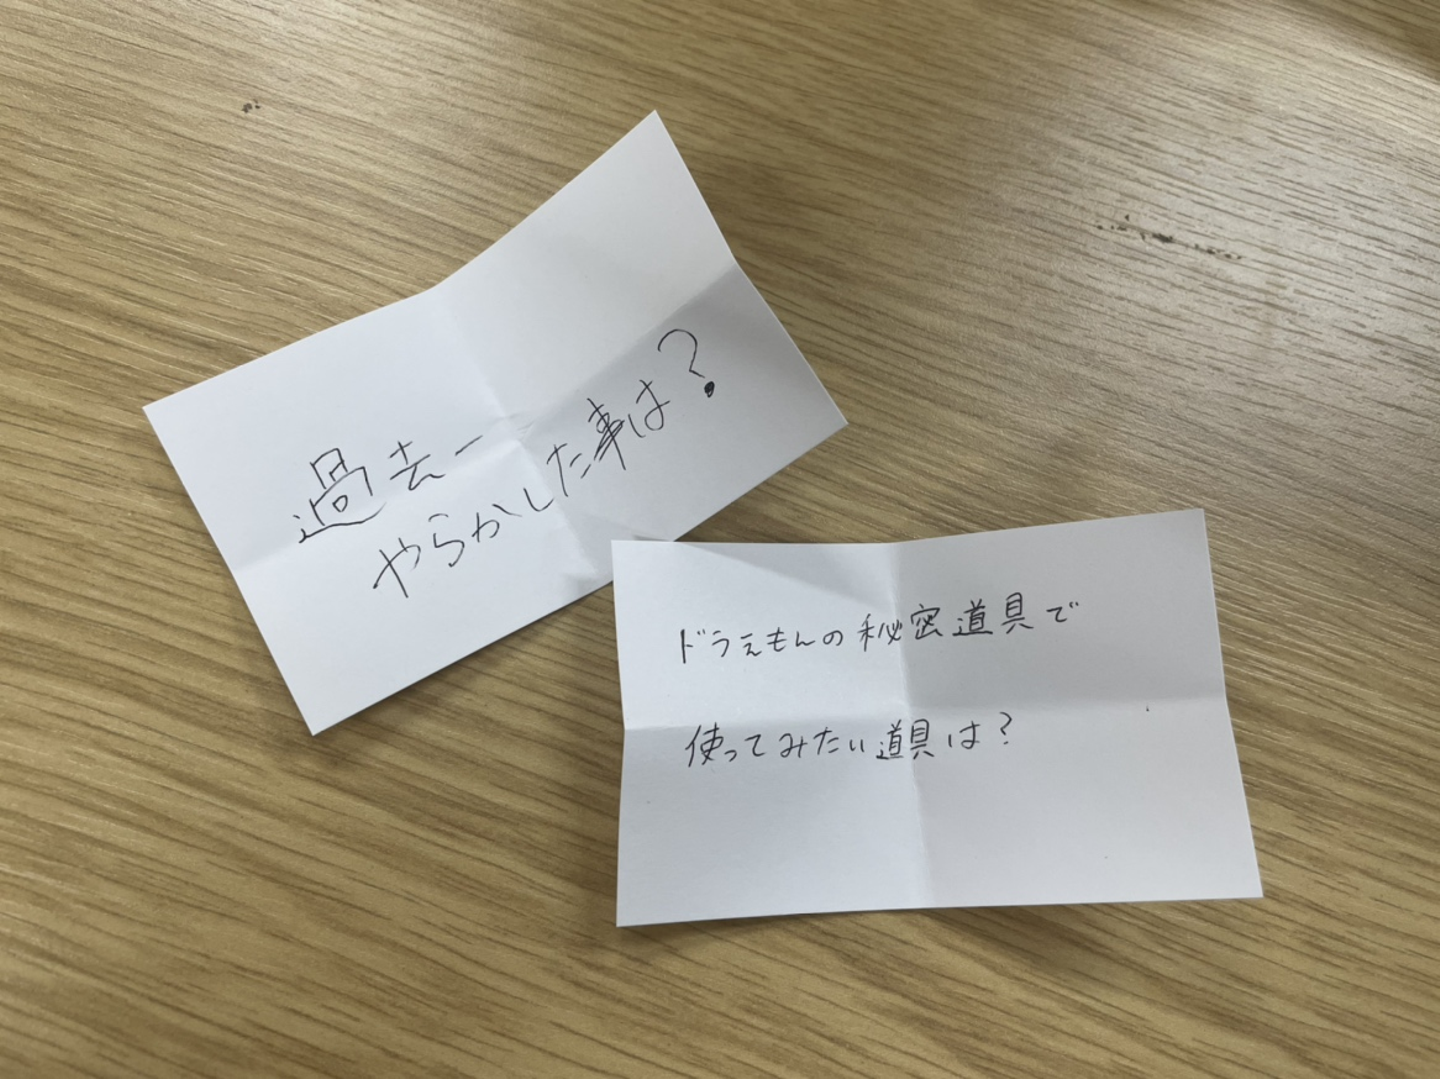 過去一
やらかした事は?
ドラえもんの秘密道具で
使ってみたい道具は?